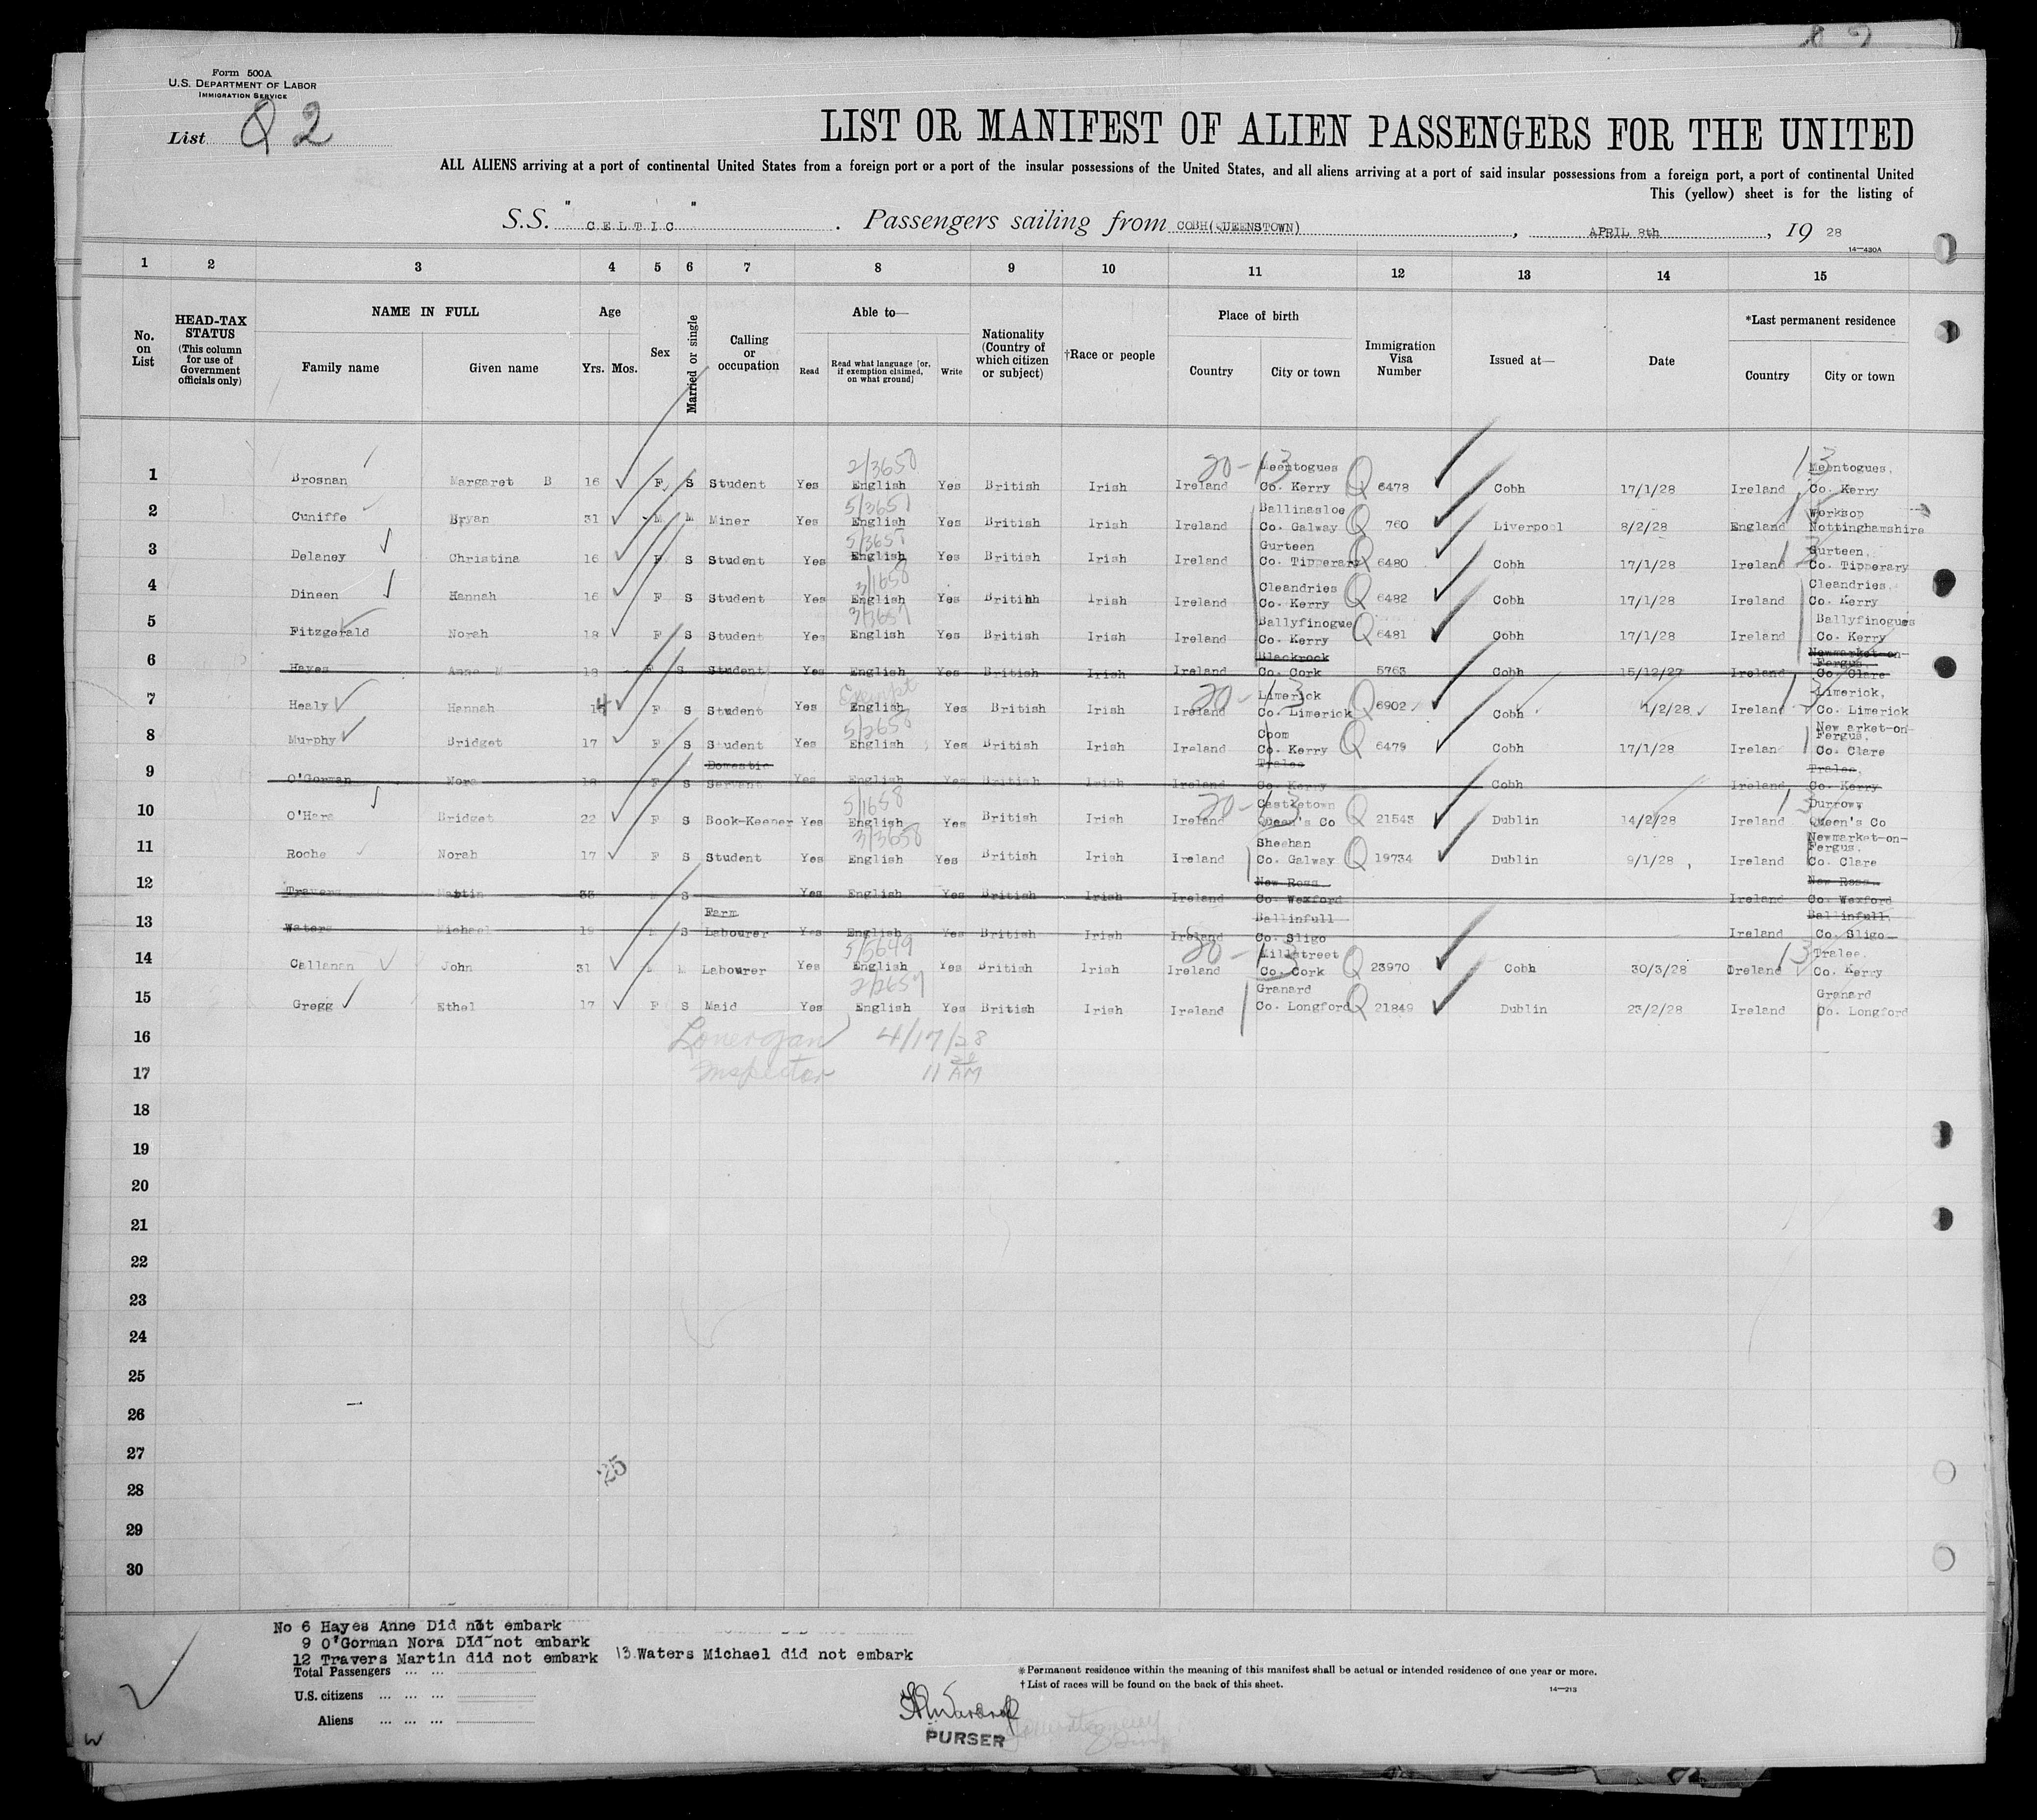 Form 500A
U.S. DEPARTMENT OF LABOR
IMMIGRATION SERVICE
List Q 2
LIST OR MANIFEST OF ALIEN PASSENGERS FOR THE UNITED
ALL ALIENS arriving at a port of continental United States from a foreign port or a port of the insular possessions of the United States, and all aliens arriving at a port of said insular possessions from a foreign port, a port of continental United
This (yellow) sheet is for the listing of
S.S. "CELTIC" . Passengers sailing from COBH(QUEENSTOWN) , APRIL 8th , 19 28
14—430A
1 2 3 4 5 6 7 8 9 10 11 12 13 14 15
No. on List
HEAD-TAX STATUS (This column for use of Government officials only)
NAME IN FULL Family name Given name
Age Yrs. Mos.
Sex
Married or single
Calling or occupation
Able to— Read Read what language [or, if exemption claimed, on what ground] Write
Nationality (Country of which citizen or subject)
†Race or people
Place of birth Country City or town
Immigration Visa Number
Issued at—
Date
*Last permanent residence Country City or town
1 Brosnan Margaret B 16 F S Student Yes 2/3658 English Yes British Irish Ireland 20-13 Meentogues Co. Kerry Q 6478 Cobh 17/1/28 Ireland 13 Meentogues, Co. Kerry
2 Cuniffe Bryan 31 M M Miner Yes 5/3651 English Yes British Irish Ireland Ballinasloe Co. Galway Q 760 Liverpool 8/2/28 England Worksop Nottinghamshire
3 Delaney Christina 16 F S Student Yes English Yes British Irish Ireland Gurteen Co. Tipperary Q 6480 Cobh 17/1/28 Ireland 13 Gurteen, Co. Tipperary
4 Dineen Hannah 16 F S Student Yes 3/1658 English Yes British Irish Ireland Cleandries Co. Kerry Q 6482 Cobh 17/1/28 Ireland Cleandries, Co. Kerry
5 Fitzgerald Norah 18 F S Student Yes 3/3657 English Yes British Irish Ireland Ballyfinogue Co. Kerry Q 6481 Cobh 17/1/28 Ireland Ballyfinogues Co. Kerry
6 Hayes Anne M 18 F S Student Yes English Yes British Irish Ireland Blackrock Co. Cork 5763 Cobh 15/12/27 Ireland Newmarket-on-Fergus, Co. Clare
7 Healy Hannah 14 F S Student Yes Exempt English Yes British Irish Ireland 20-13 Limerick Co. Limerick Q 6902 Cobh 1/2/28 Ireland 13 Limerick, Co. Limerick
8 Murphy Bridget 17 F S Student Yes 5/2658 English Yes British Irish Ireland Coom Co. Kerry Q 6479 Cobh 17/1/28 Ireland New arket-on-Fergus, Co. Clare
9 O'Gorman Nora 18 F S Domestic Servant Yes English Yes British Irish Ireland Tralee Co. Kerry Cobh Ireland Tralee, Co. Kerry
10 O'Hara Bridget 22 F S Book-Keeper Yes 5/1658 English Yes British Irish Ireland 20-13 Castletown Queen's Co Q 21543 Dublin 14/2/28 Ireland 13 Durrow, Queen's Co
11 Roche Norah 17 F S Student Yes 3/3658 English Yes British Irish Ireland Sheehan Co. Galway Q 19734 Dublin 9/1/28 Ireland Newmarket-on-Fergus, Co. Clare
12 Travers Martin 33 M S Yes English Yes British Irish Ireland New Ross Co. Wexford Ireland New Ross Co. Wexford
13 Waters Michael 19 M S Farm Labourer Yes English Yes British Irish Ireland Ballinfull Co. Sligo Ireland Ballinfull, Co. Sligo
14 Callanan John 31 M M Labourer Yes 5/5649 English Yes British Irish Ireland 20-13 Millstreet Co. Cork Q 23970 Cobh 30/3/28 Ireland 13 Tralee, Co. Kerry
15 Gregg Ethel 17 F S Maid Yes 2/2657 English Yes British Irish Ireland Granard Co. Longford Q 21849 Dublin 23/2/28 Ireland Granard Co. Longford
16 Lonergan 4/17/28
17 Inspector 11 AM
18
19
20
21
22
23
24
25
26
27
25
28
29
30
No 6 Hayes Anne Did not embark
9 O'Gorman Nora Did not embark
12 Travers Martin did not embark 13 Waters Michael did not embark
Total Passengers
U.S. citizens
Aliens
*Permanent residence within the meaning of this manifest shall be actual or intended residence of one year or more.
†List of races will be found on the back of this sheet.
14—213
PURSER